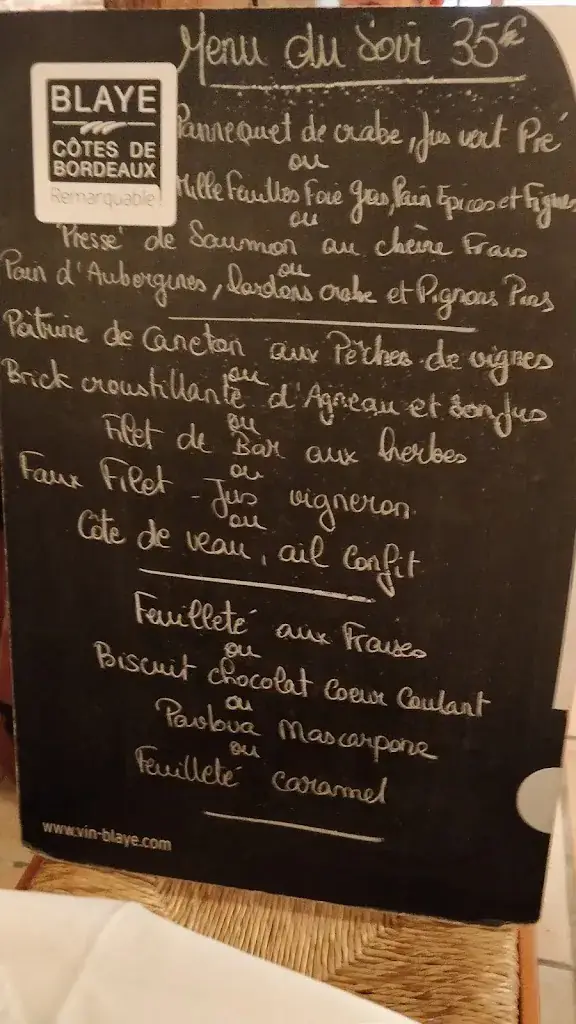 Menu du Soir 35€
BLAYE
CÔTES DE
BORDEAUX
Remarquable
Pannequet de crabe, Jus vert Pré
ou
Mille Feuilles Foie gras, Pain Epices et Figues
ou
Pressé de Saumon au chèvre Frais
ou
Pain d'Aubergines, lardons crabe et Pignons Pins
Poitrine de Caneton aux Pêches de vignes
ou
Brick croustillante d'Agneau et son jus
ou
Filet de Bar aux herbes
ou
Faux Filet - Jus vigneron
ou
Côte de veau, ail Confit
Feuilleté aux Fraises
ou
Biscuit chocolat Coeur Coulant
ou
Pavlova Mascarpone
ou
Feuilleté caramel
www.vin-blaye.com